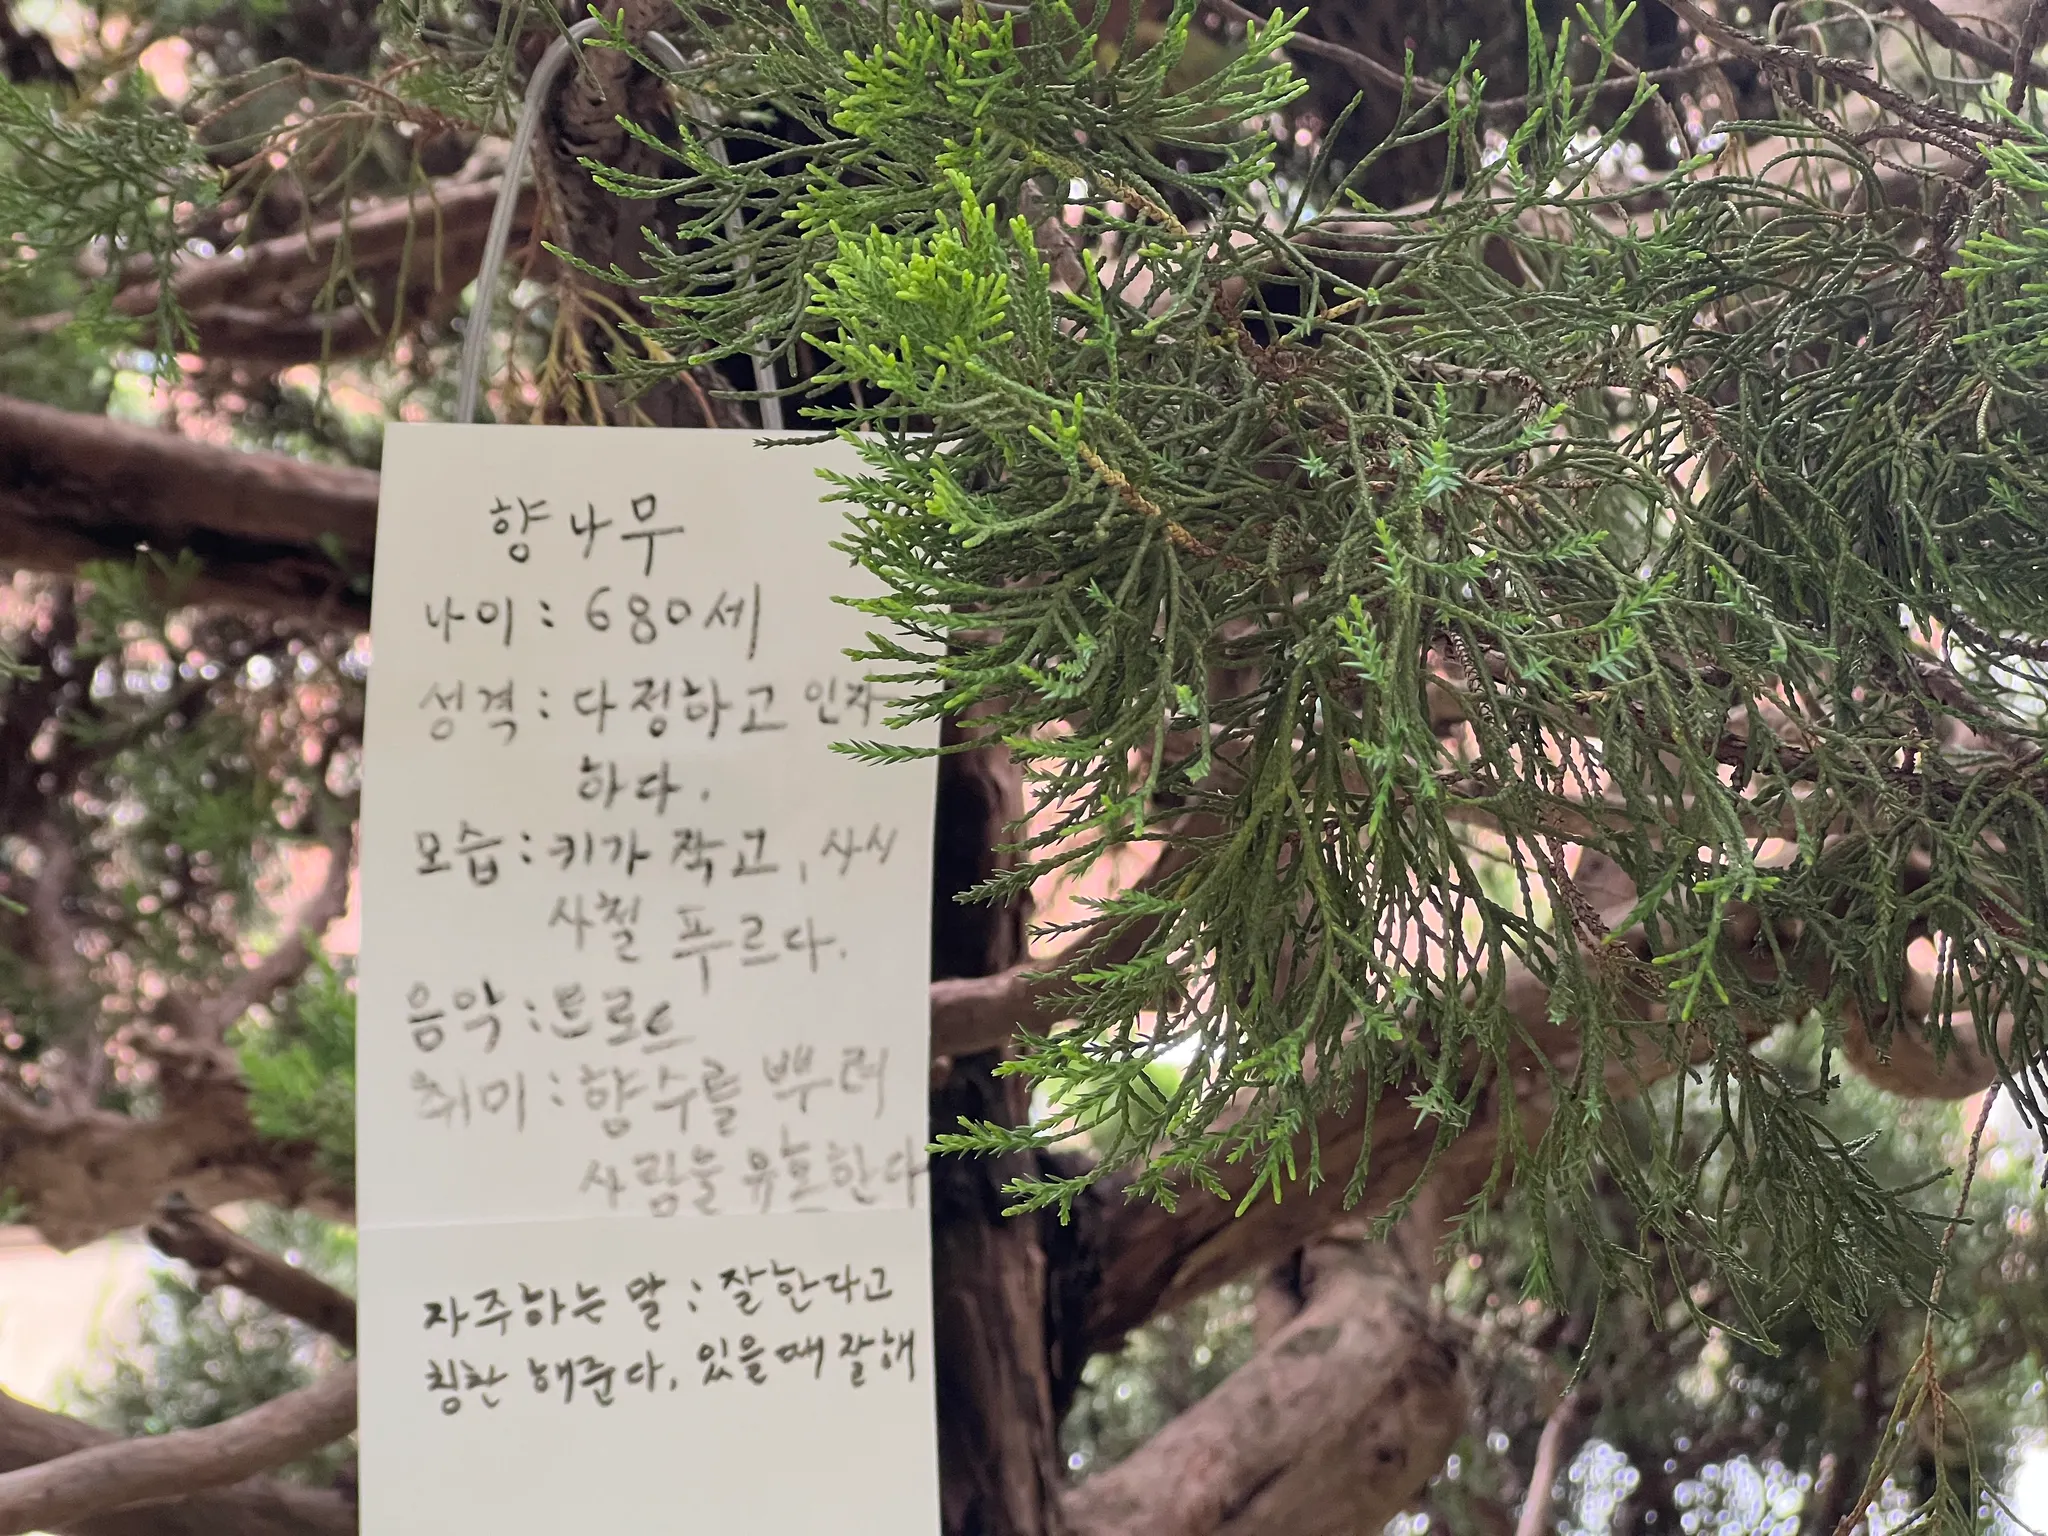 향나무
나이 : 680세
성격 : 다정하고 인자
하다.
모습 : 키가 작고, 사시
사철 푸르다.
음악 : 트로트
취미 : 향수를 뿌려
사람을 유혹한다
자주하는 말 : 잘한다고
칭찬 해준다. 있을때 잘해